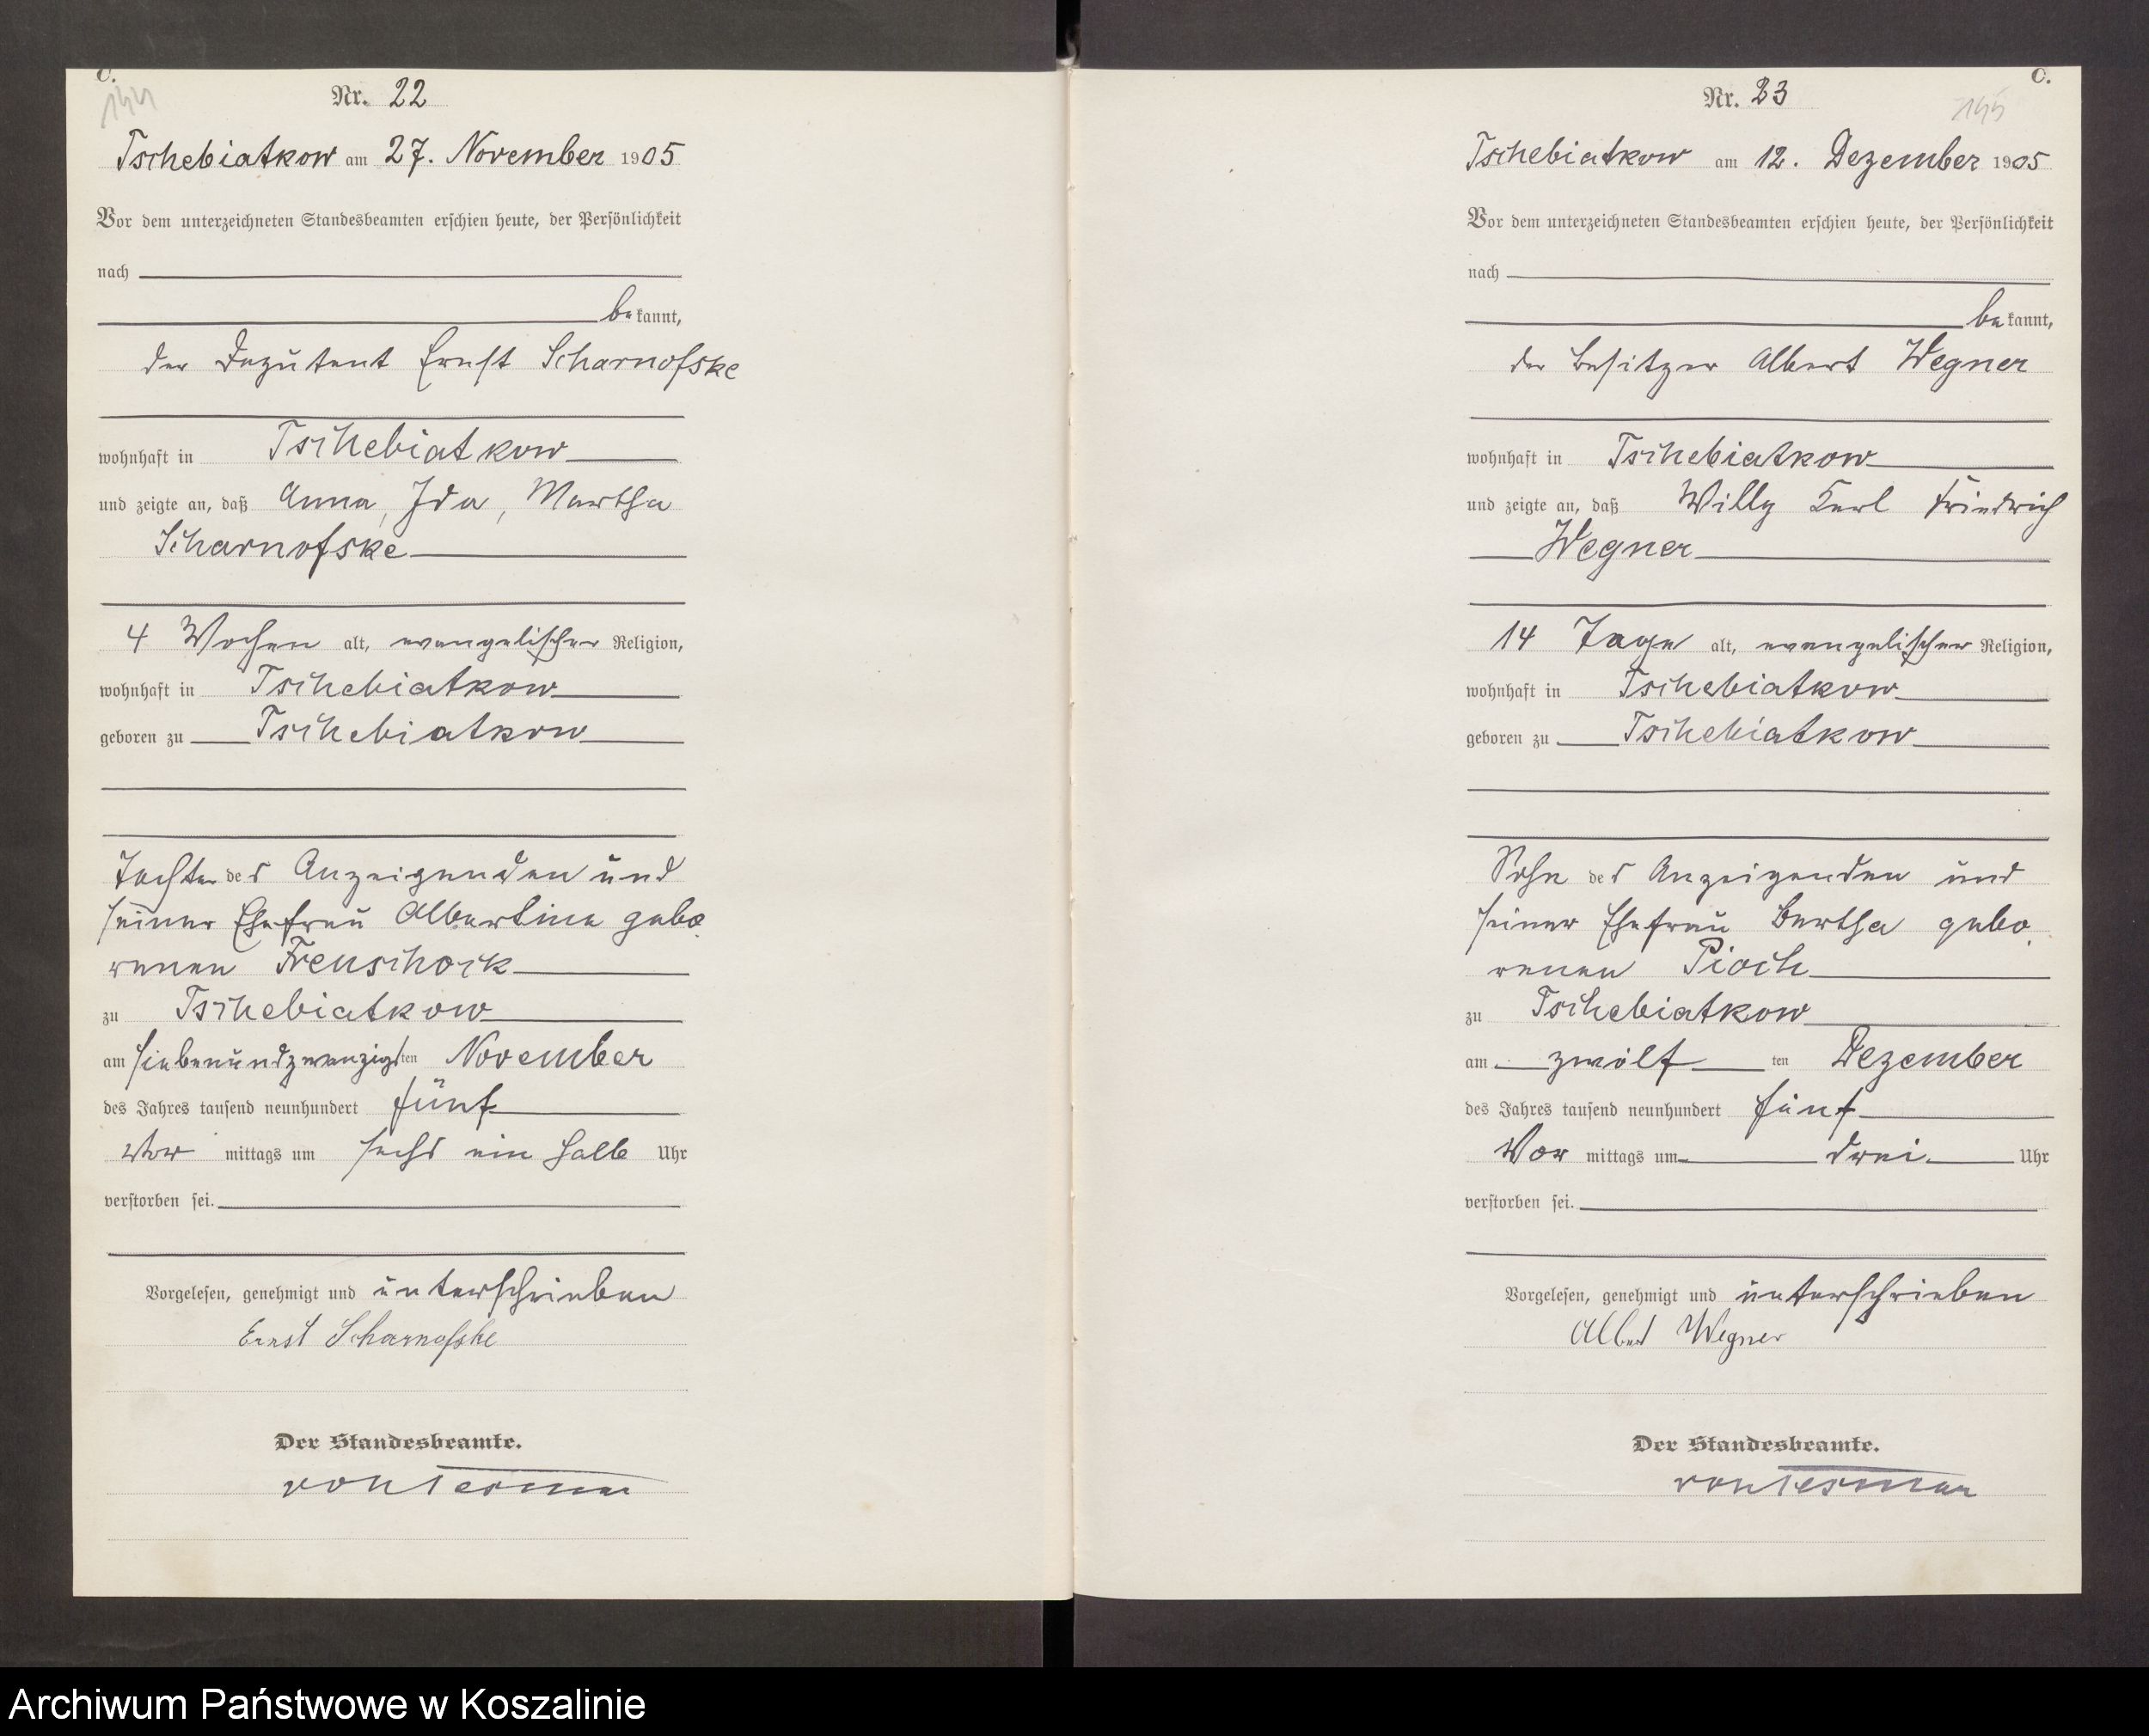 C.
144
Nr. 22
Tschebiatkow am 27. November 1905
Vor dem unterzeichneten Standesbeamten erschien heute, der Persönlichkeit
nach
bekannt,
der Deputant Ernst Scharnofske
wohnhaft in Tschebiatkow
und zeigte an, daß Anna, Ida, Martha
Scharnofske
4 Wochen alt, evangelischer Religion,
wohnhaft in Tschebiatkow
geboren zu Tschebiatkow
Tochter des Anzeigenden und
seiner Ehefrau Albertine gebo
renen Frenschock
zu Tschebiatkow
am siebenundzwanzigsten November
des Jahres tausend neunhundert fünf
Vor mittags um sechs ein halb Uhr
verstorben sei.
Vorgelesen, genehmigt und unterschrieben
Ernst Scharnofske
Der Standesbeamte.
C.
145
Nr. 23
Tschebiatkow am 12. Dezember 1905
Vor dem unterzeichneten Standesbeamten erschien heute, der Persönlichkeit
nach
bekannt,
der Besitzer Albert Wegner
wohnhaft in Tschebiatkow
und zeigte an, daß Willy Karl Friedrich
Wegner
14 Tage alt, evangelischer Religion,
wohnhaft in Tschebiatkow
geboren zu Tschebiatkow
Sohn des Anzeigenden und
seiner Ehefrau Bertha gebo
renen Pioch
zu Tschebiatkow
am zwölf ten Dezember
des Jahres tausend neunhundert fünf
Vor mittags um drei Uhr
verstorben sei.
Vorgelesen, genehmigt und unterschrieben
Albert Wegner
Der Standesbeamte.
Archiwum Państwowe w Koszalinie